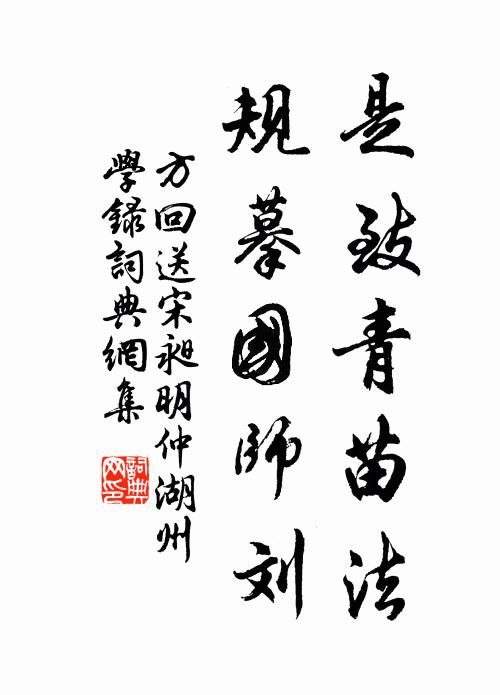 是致青苗法
規摹國師刘
方回送宋昶明仲湖州
學録詞典網集
詞典
网印